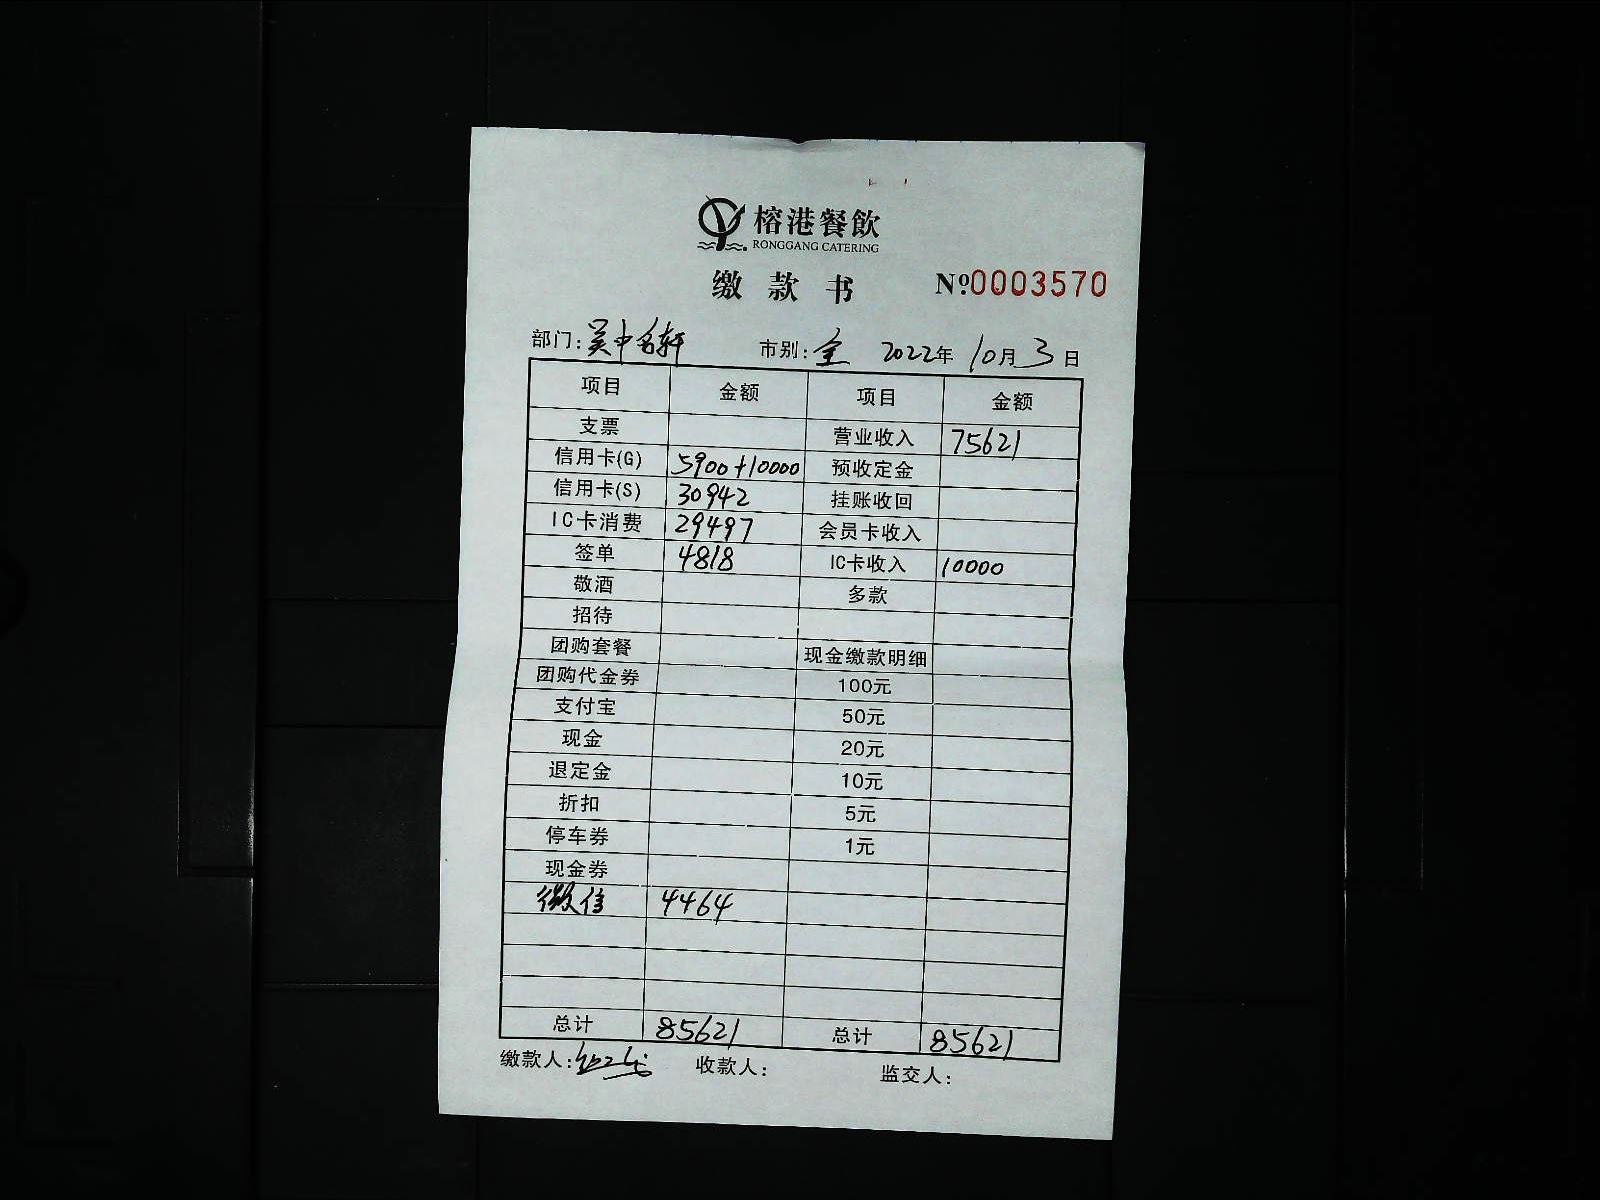 榕港餐飲
RONGGANG CATERING
缴款书 №0003570
部门:吴中名轩 市别:全 2022年10月3日
项目 金额 项目 金额
支票 营业收入 75621
信用卡(G) 5900+10000 预收定金
信用卡(S) 30942 挂账收回
IC卡消费 29497 会员卡收入
签单 4818 IC卡收入 10000
敬酒 多款
招待
团购套餐 现金缴款明细
团购代金券 100元
支付宝 50元
现金 20元
退定金 10元
折扣 5元
停车券 1元
现金券
微信 4464
总计 85621 总计 85621
缴款人: 收款人: 监交人: